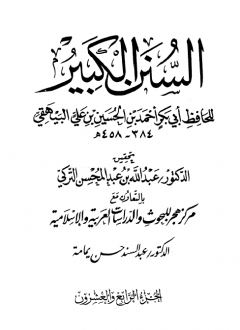 السنن الكبير
للحافظ أبي بكر أحمد بن الحسين بن علي البيهقي
٣٨٤ - ٤٥٨ هـ
تحقيق
الدكتور / عبد الله بن عبد المحسن التركي
بالتعاون مع
مركز هجر للبحوث والدراسات العربية والإسلامية
الدكتور / عبد السند حسن يمامة
الجزء الرابع والعشرون